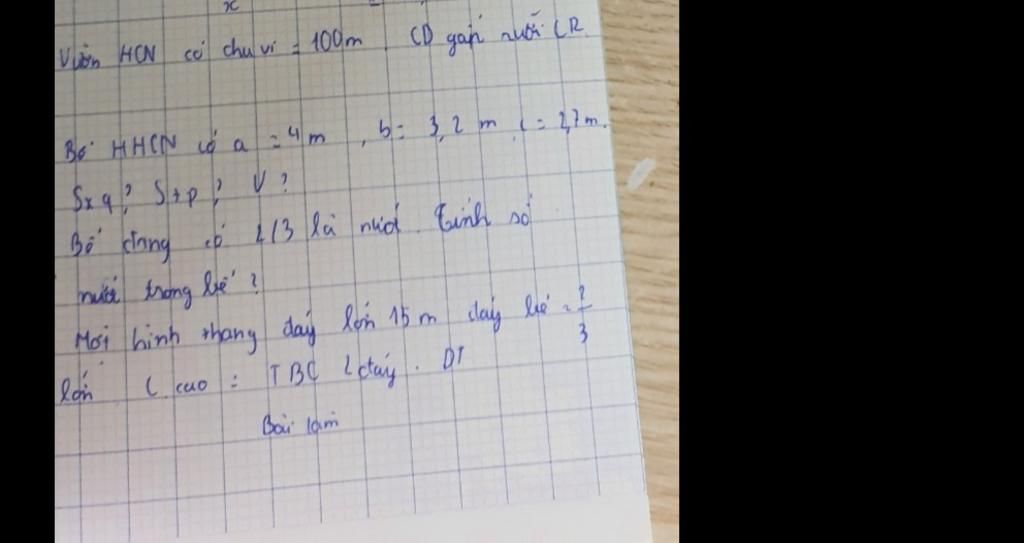 x
Vườn HCN có chu vi = 100m. CD gấp rưỡi CR.
Bể HHCN có a = 4m, b = 3,2 m, c = 2,7m.
Sxq? Stp? V?
Bể đang có 2/3 là nước. Tính số
nước trong bể?
Một hình thang đáy lớn 15 m đáy bé = 2/3
lớn C.cao = TBC 2 đáy. DT
Bài làm